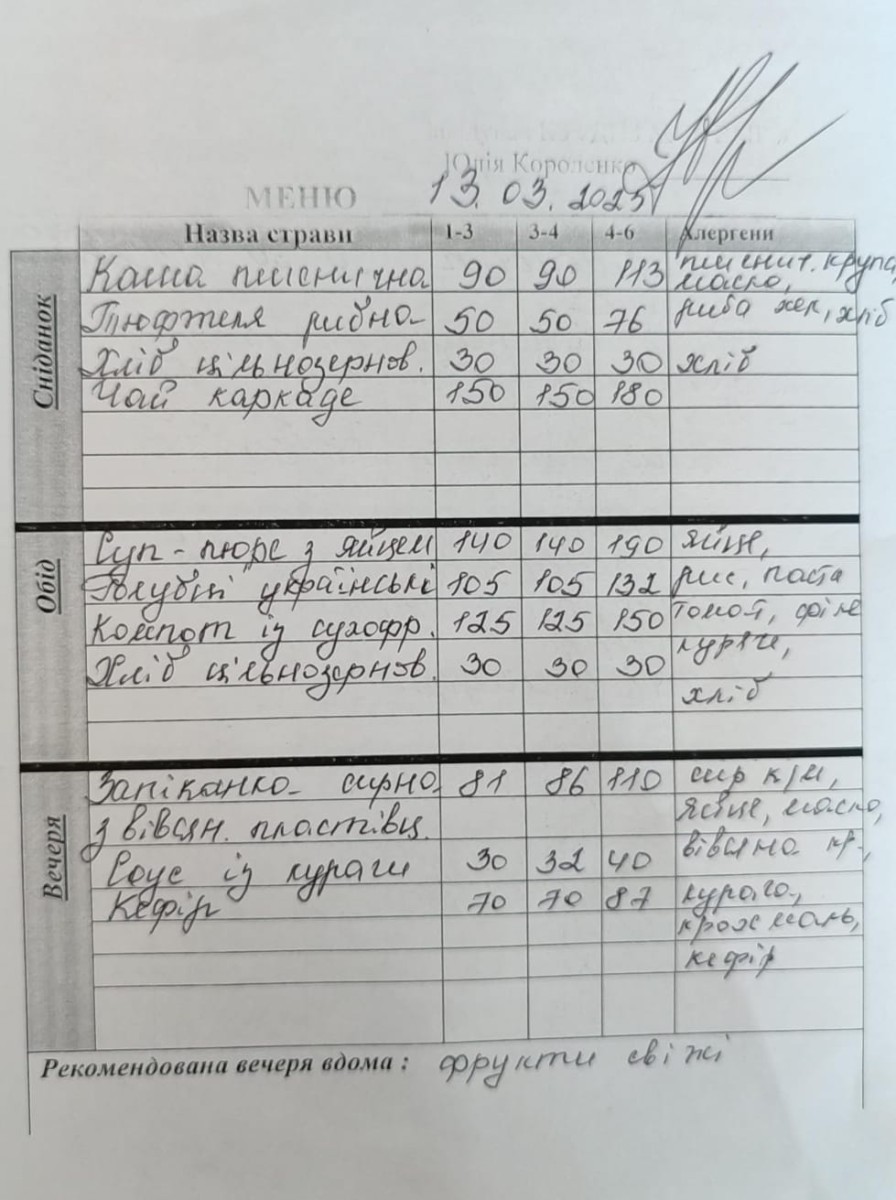 Юлія Короленко
МЕНЮ 13.03.2025
Назва страви 1-3 3-4 4-6 Алергени
Сніданок
Каша пшенична 90 90 113 пшенич. крупа, масло,
Тюфтеля рибна 50 50 76 риба хек, хліб
Хліб цільнозернов. 30 30 30 хліб
Чай каркаде 150 150 180
Обід
Суп-пюре з яйцем 140 140 190 яйце,
Голубці українські 105 105 132 рис, паста
Компот із сухофр. 125 125 150 томат, філе
куряче,
Хліб цільнозернов. 30 30 30
хліб
Вечеря
Запіканка сирна 81 86 110 сир к/м,
з вівсян. пластівц. яйце, масло,
Соус із кураги 30 32 40 вівсяна кр.,
Кефір 70 70 87 курага,
крохмаль,
кефір
Рекомендована вечеря вдома : фрукти свіжі